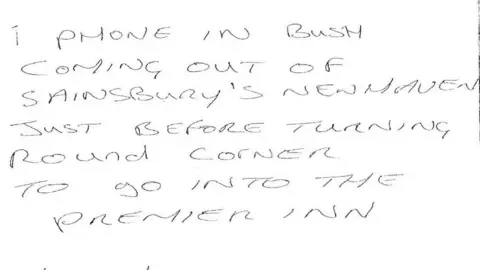 i PHONE IN BUSH
COMING OUT OF
SAINSBURY'S NEWHAVEN
JUST BEFORE TURNING
ROUND CORNER
TO GO INTO THE
PREMIER INN